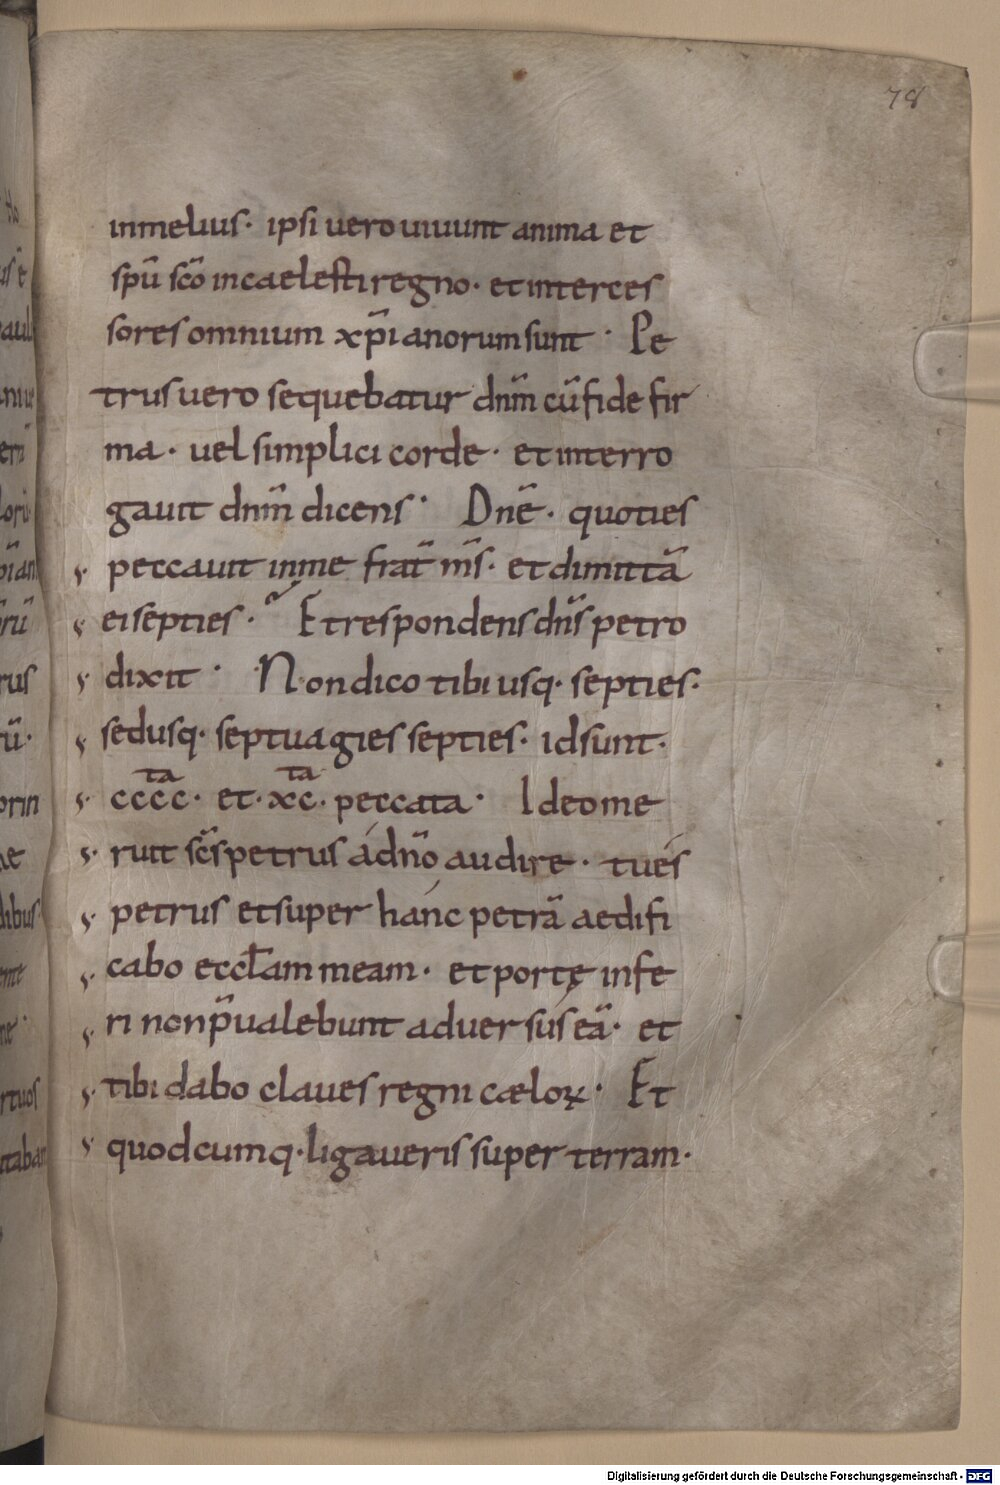 78
inmelius· ipsi uero uiuunt anima et
spū sc̄o incaelesti regno· et interces
sores omnium xp̄ianorum sunt · Pe
trus uero sequebatur dnm̄ cū fide fir
ma· uel simplici corde· et interro
gauit dnm̄ dicens · Dnē· quoties
peccauit inme frat̄ ms̄· et dimittā
ei septies · Et respondens dns̄ petro
dixit · Non dico tibi usq· septies·
sed usq· septuagies septies· id sunt·
cccc^ta· et· xc^ta· peccata · Ideo me
ruit sc̄s petrus ád dn̄o audire· tu és
petrus et super hánc petrā aedifi
cabo eccl̄am meam· et portę infe
ri non p̄ualebunt aduersus eā· et
tibi dabo claues regni cælorꝝ· Et
quodcumq· ligaueris super terram·
Digitalisierung gefördert durch die Deutsche Forschungsgemeinschaft - DFG